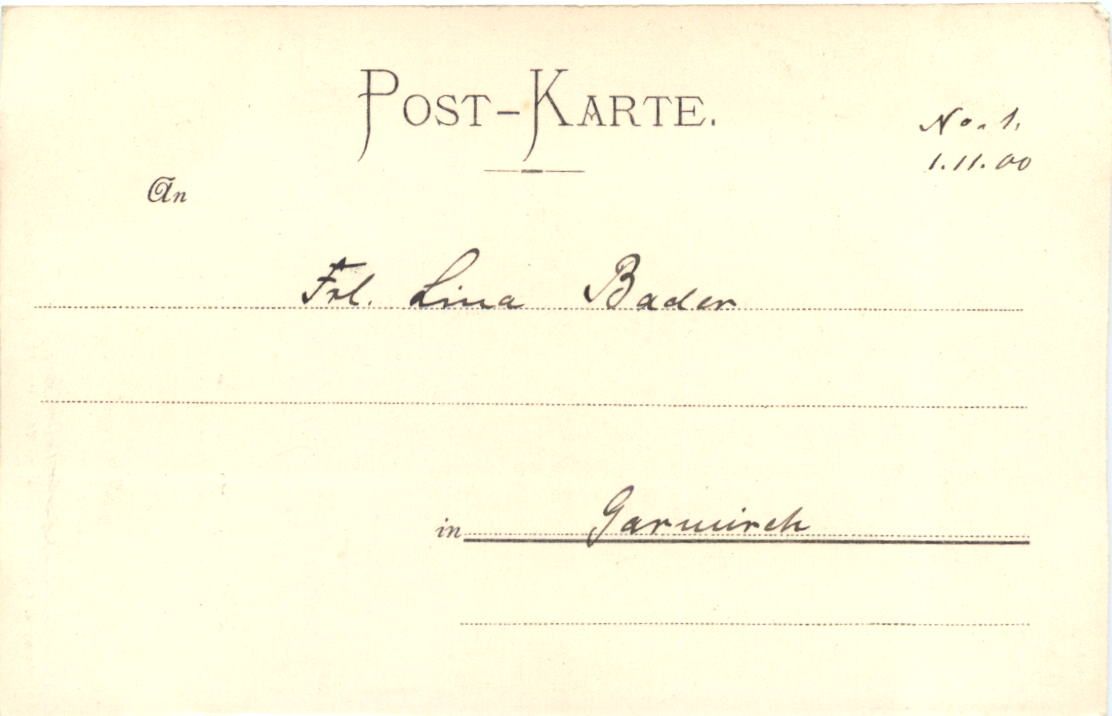 POST-KARTE.
No. 1.
1.11.00
An
Frl. Lina Bader
in Garmisch